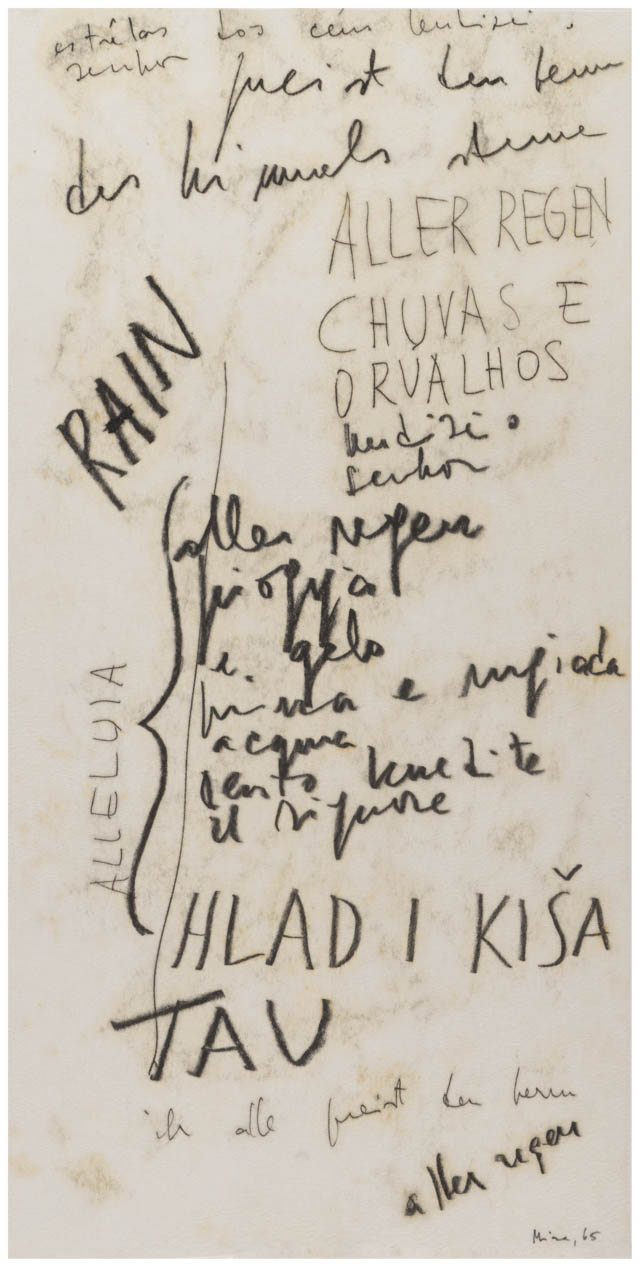 estrêlas dos céus bendizei o
senhor
preist den herrn
des himmels sterne
ALLER REGEN
CHUVAS E
ORVALHOS
bendizei o
senhor
RAIN
aller regen
pioggia
e gelo
brina e rugiada
acqua
vento benedite
il signore
ALLELUIA
HLAD I KIŠA
TAU
ihr alle preist den herrn
aller regen
Mira, 65